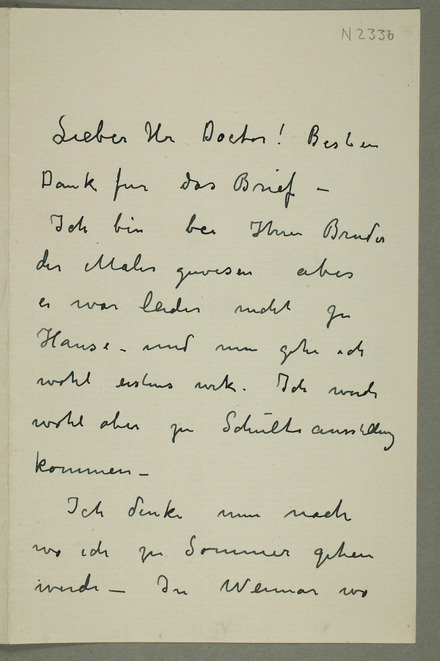 N 2336
Lieber Hr Doctor! Besten
Dank für das Brief –
Ich bin bei Ihren Bruder
der Maler gewesen aber
er war leider nicht zu
Hause – und nun gehe ich
wohl erstens wek. Ich werde
wohl aber zu Schulteausstellung
kommen –
Ich denke nun nach
wo ich zu Sommer gehen
werde – In Weimar wo